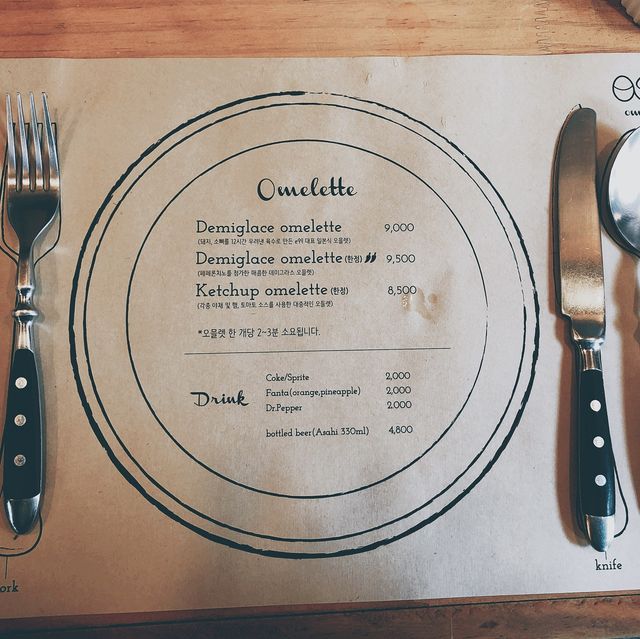 Omelette
Demiglace omelette 9,000
(돼지, 소뼈를 12시간 우려낸 육수로 만든 e9의 대표 일본식 오믈렛)
Demiglace omelette (한정) 9,500
(페페론치노를 첨가한 매콤한 데미그라스 오믈렛)
Ketchup omelette (한정) 8,500
(각종 야채 및 햄, 토마토 소스를 사용한 대중적인 오믈렛)
*오믈렛 한 개당 2~3분 소요됩니다.
Coke/Sprite 2,000
Drink Fanta(orange,pineapple) 2,000
Dr.Pepper 2,000
bottled beer(Asahi 330ml) 4,800
knife
ork